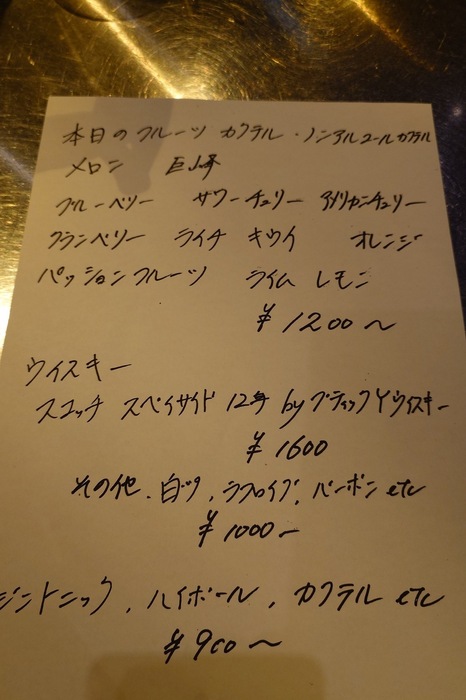 本日のフルーツ カクテル・ノンアルコールカクテル
メロン 巨峰
ブルーベリー サワーチェリー アメリカンチェリー
クランベリー ライチ キウイ オレンジ
パッションフルーツ ライム レモン
¥1200〜
ウイスキー
スコッチ スペイサイド 12年 by ブティックYウイスキー
¥1600
その他、白、ラフロイグ、バーボン etc
¥1000〜
ジントニック、ハイボール、カクテル etc
¥900〜